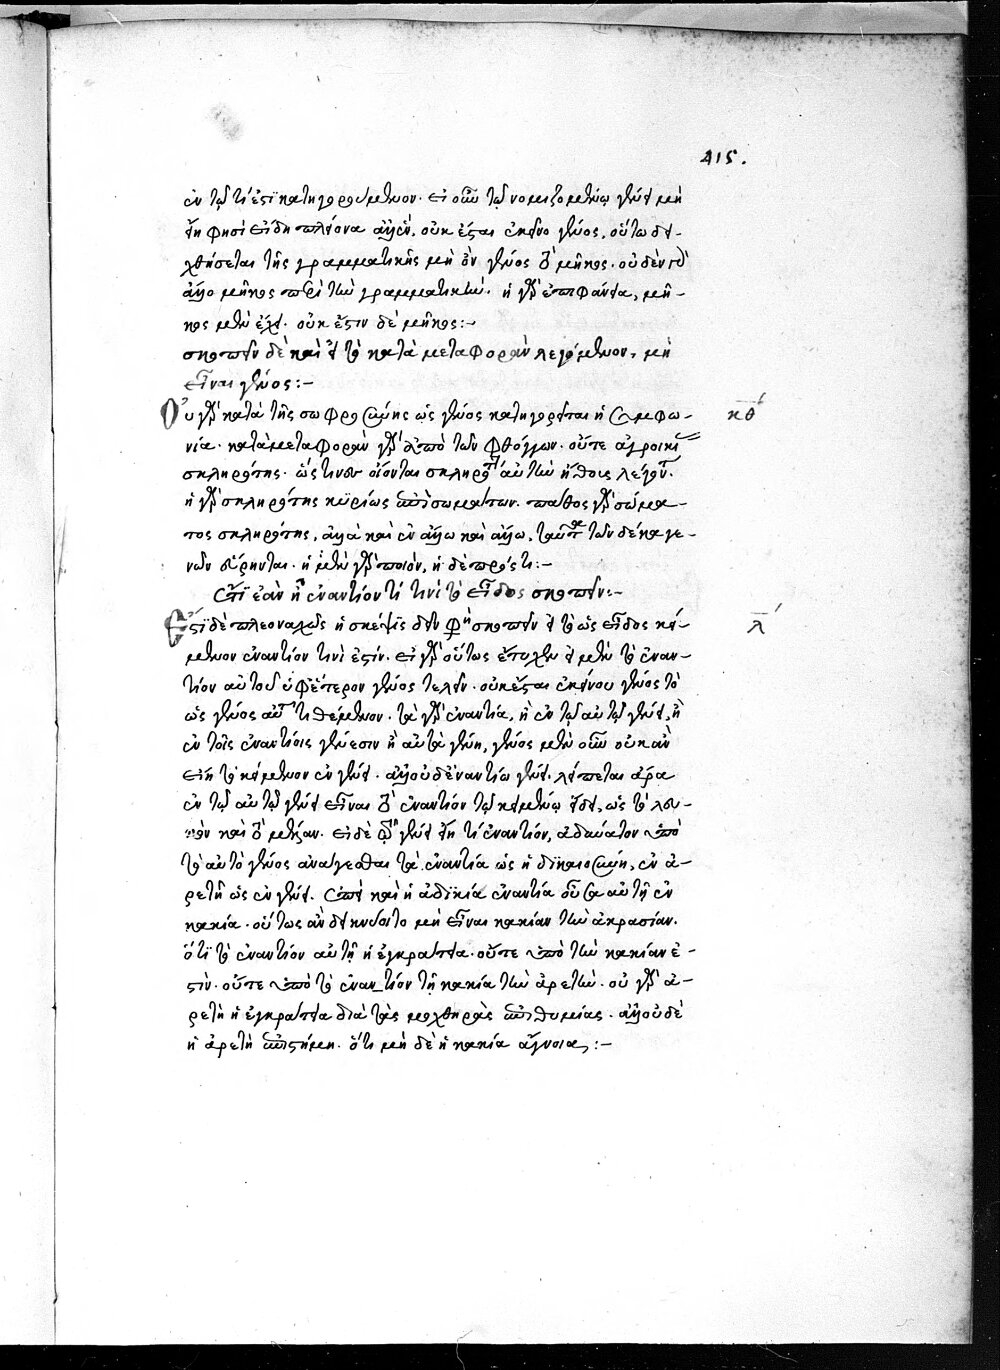 415.
ἐν τῷ τί ἐστι κατηγορούμενον. εἰ οὖν τῷ νομιζομένῳ γένει μὴ
ᾖ φησὶ εἴδη πλείονα οὐκ ἔσται ἐκεῖνο γένος. οὕτω δει-
χθήσεται τῆς γραμματικῆς μὴ ὂν γένος τὸ μῆκος. οὐδὲν γὰρ
ἄλλο μῆκος περὶ τὴν γραμματικήν. ἡ γὰρ ἐπιφάνεια, μῆ-
κος μὲν ἔχει. οὐκ ἔστιν δὲ μῆκος:-
σκοπεῖν δὲ καὶ εἰ τὸ κατὰ μεταφορὰν λεγόμενον, μὴ
εἶναι γένος:-
Οὐ γὰρ κατὰ τῆς σωφροσύνης ὡς γένος κατηγορεῖται ἡ συμφω-
κθ
νία. κατὰ μεταφορὰν γὰρ ἀπὸ τῶν φθόγγων. οὔτε ἀγροικί
σκληρότης. ὥς τινων οἴονται σκληρότητα αὐτὴν ἤθους λέγοντες.
ἡ γὰρ σκληρότης κυρίως ἐπὶ σωμάτων. πάθος γὰρ σώμα-
τος σκληρότης, ἀλλὰ καὶ ἐν ἄλλῳ καὶ ἄλλῳ, ταῦτα τῶν δέκα γε-
νῶν εἴρηνται. ἡ μὲν γὰρ ποιόν, ἡ δὲ πρός τι:-
ἔτι ἐὰν ᾖ ἐναντίον τί τινὶ τῷ εἶδος σκοπεῖν:-
Ἔστι δὲ πλεοναχῶς ἡ σκέψις δεῖν φησι σκοπεῖν εἰ τὸ ὡς εἶδος κεί-
λ
μενον ἐναντίον τινί ἐστίν. εἰ γὰρ οὕτως ἔτυχεν εἰ μὲν τὸ ἐναν-
τίον αὐτοῦ ὑφ' ἕτερον γένος τελεῖν. οὐκ ἔσται ἐκείνου γένος τὸ
ὡς γένος αὐτοῦ τιθέμενον. τὰ γὰρ ἐναντία, ἢ ἐν τῷ αὐτῷ γένει, ἢ
ἐν τοῖς ἐναντίοις γένεσιν ἢ αὐτὰ γένη, γένος μὲν οὖν οὐκ ἂν
εἴη τὸ κείμενον ἐν γένει. ἀλλ' οὐδὲ ἐναντίῳ γένει. λείπεται ἄρα
ἐν τῷ αὐτῷ γένει εἶναι τὸ ἐναντίον τῷ κειμένῳ εἴδει, ὡς τὸ λευ-
κὸν καὶ τὸ μέλαν. εἰ δὲ τῷ γένει ᾖ τί ἐναντίον, ἀδύνατον ὑπὸ
τὸ αὐτὸ γένος ἀνάγεσθαι τὰ ἐναντία ὡς ἡ δικαιοσύνη, ἐν ἀ-
ρετῇ ὡς ἐν γένει. ἐπεὶ καὶ ἡ ἀδικία ἐναντία οὖσα αὐτῇ ἐν
κακίᾳ. οὕτως ἂν δεικνύοιτο μὴ εἶναι κακίαν τὴν ἀκρασίαν.
ὅτι τὸ ἐναντίον αὐτῇ ἡ ἐγκράτεια. οὔτε ὑπὸ τὴν κακίαν ἐ-
στίν. οὔτε ὑπὸ τὸ ἐναντίον τῇ κακίᾳ τὴν ἀρετήν. οὐ γὰρ ἀ-
ρετὴ ἡ ἐγκράτεια διὰ τὰς μοχθηρὰς ἐπιθυμίας. ἀλλ' οὐδὲ
ἡ ἀρετὴ ἐπιστήμη. ὅτι μὴ δὲ ἡ κακία ἄγνοια:-